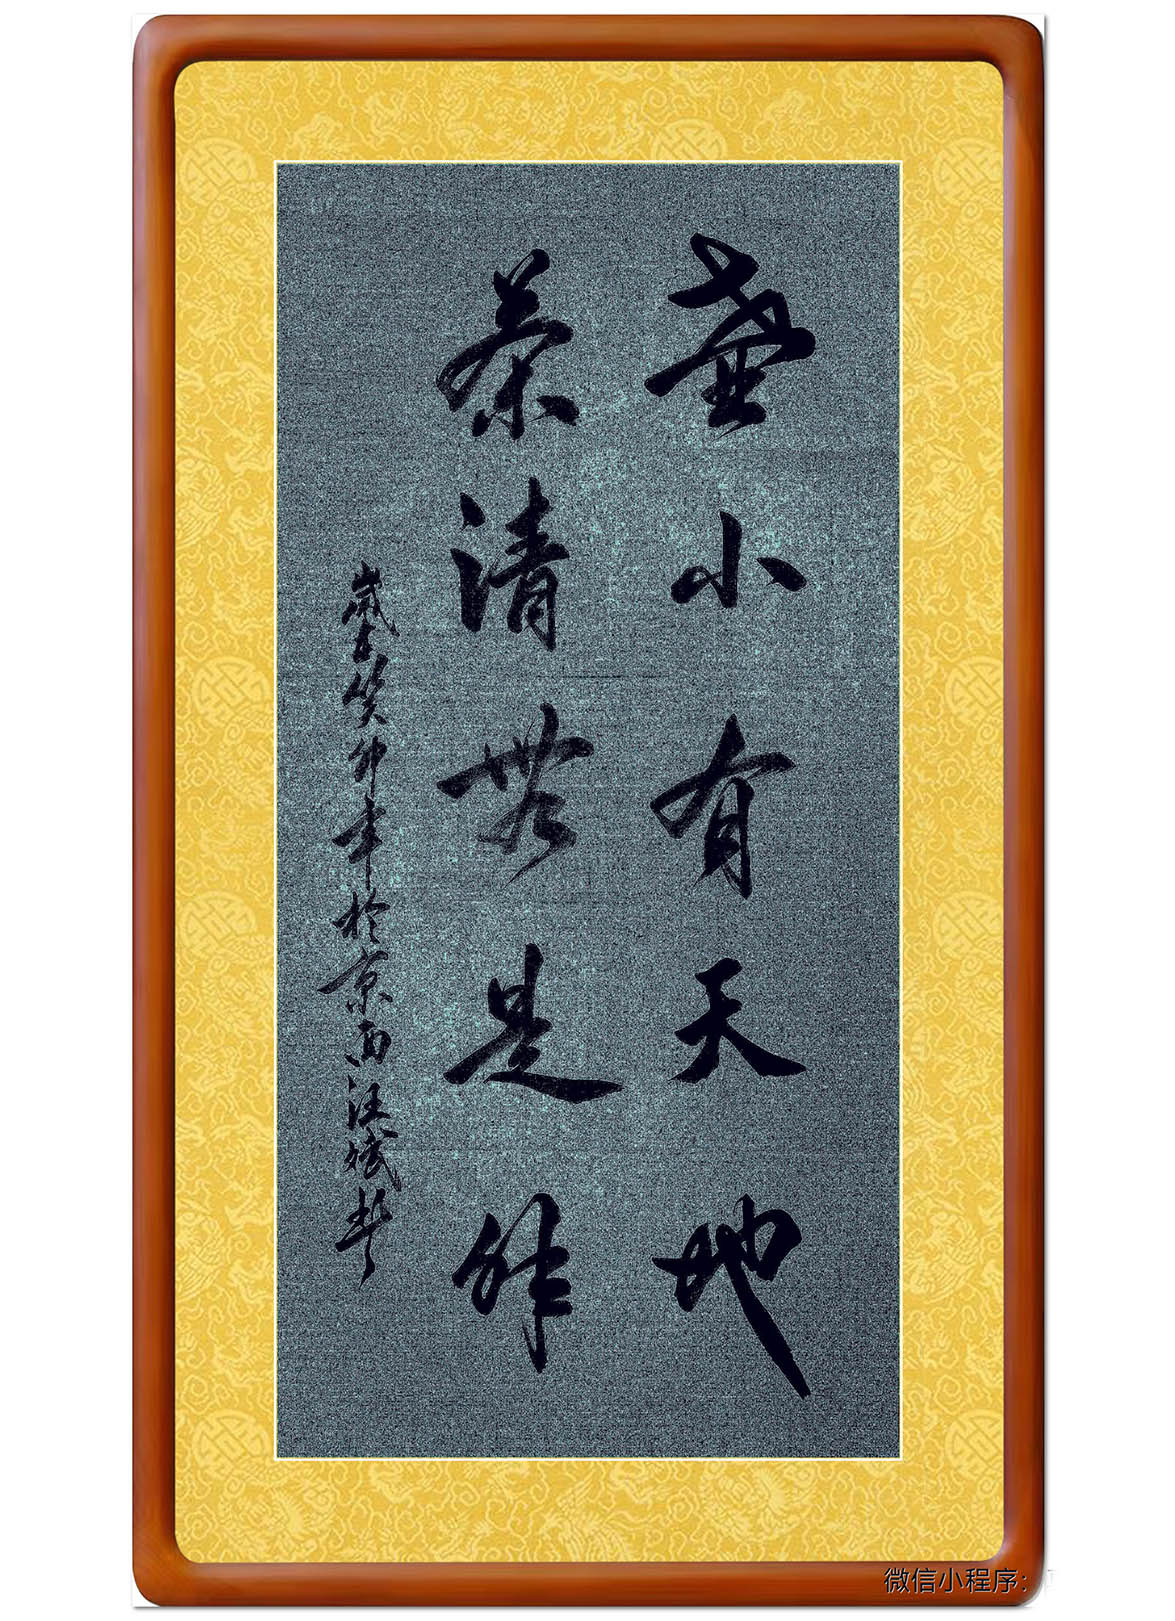 壺小有天地
茶清無是非
歲在癸卯年於京西汪斌書
微信小程序: